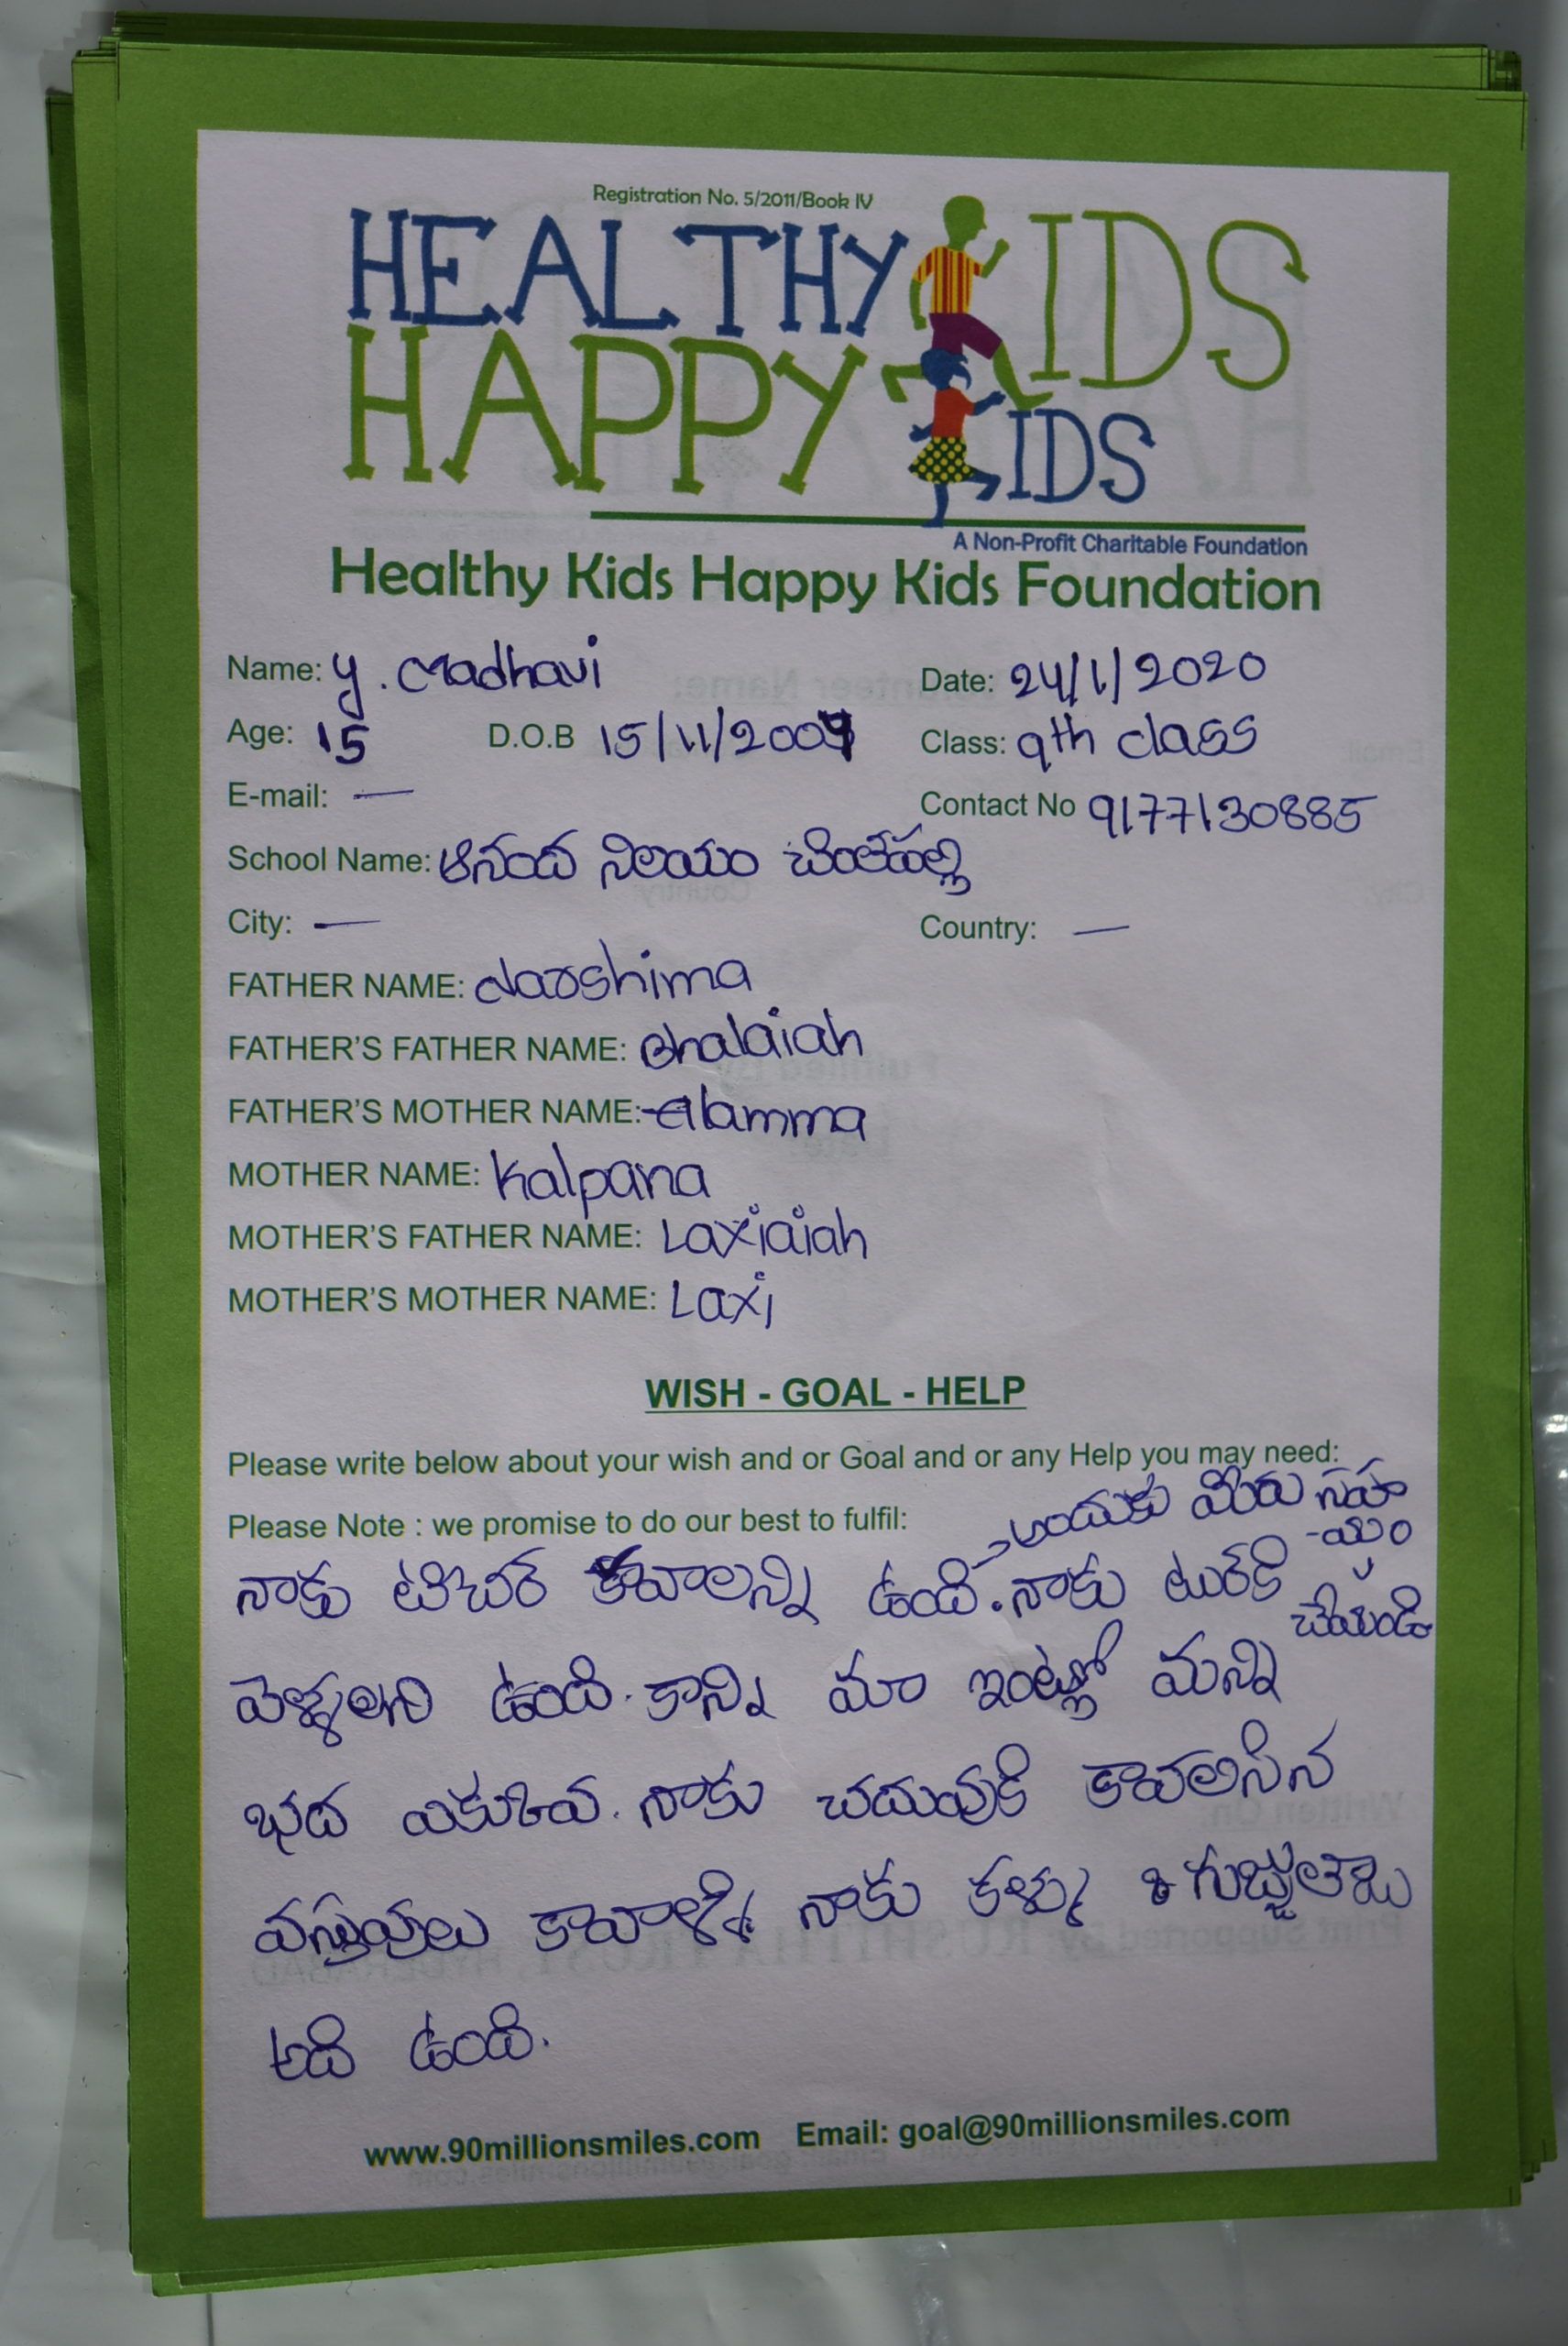 Registration No. 5/2011/Book IV
HEALTHY KIDS
HAPPY KIDS
A Non-Profit Charitable Foundation
Healthy Kids Happy Kids Foundation
Name: y. Madhavi Date: 24/1/2020
Age: 15 D.O.B 15/11/2004 Class: 9th class
E-mail: — Contact No 9177130885
School Name: ఆనంద నిలయం చింతపల్లి
City: — Country: —
FATHER NAME: narshima
FATHER'S FATHER NAME: Bhalaiah
FATHER'S MOTHER NAME: Elamma
MOTHER NAME: Kalpana
MOTHER'S FATHER NAME: Laxiaiah
MOTHER'S MOTHER NAME: Laxi
WISH - GOAL - HELP
Please write below about your wish and or Goal and or any Help you may need:
Please Note : we promise to do our best to fulfil:
అందుకు మీరు సహ
-యం
చేయండి
నాకు టిచర్ కావాలన్ని ఉంది. నాకు టుర్కి
వెళ్ళలని ఉంది. కాన్ని మా ఇంట్లో మన్ని
భద ఎకుకువ. నాకు చదువుకి కావలసిన
వస్తువులు కావాళ్ళి నాకు కళ్ళు
అది ఉంది.
www.90millionsmiles.com Email: goal@90millionsmiles.com